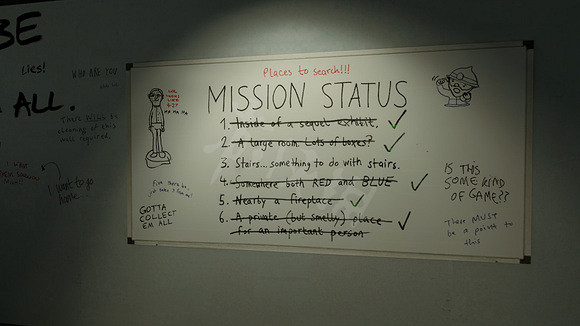 BE
Lies!
WHO ARE YOU
ALL.
I want to go
home
Places to search!!!
MISSION STATUS
1. Inside of a sequel exhibit. ✓
2. A large room. Lots of boxes? ✓
3. Stairs... something to do with stairs.
4. Somewhere both RED and BLUE ✓
5. Nearby a fireplace ✓
6. A private (but smelly) place ✓
for an important person
GOTTA
COLLECT
EM ALL
IS THIS
SOME KIND
OF GAME??
There MUST
be a point to
this